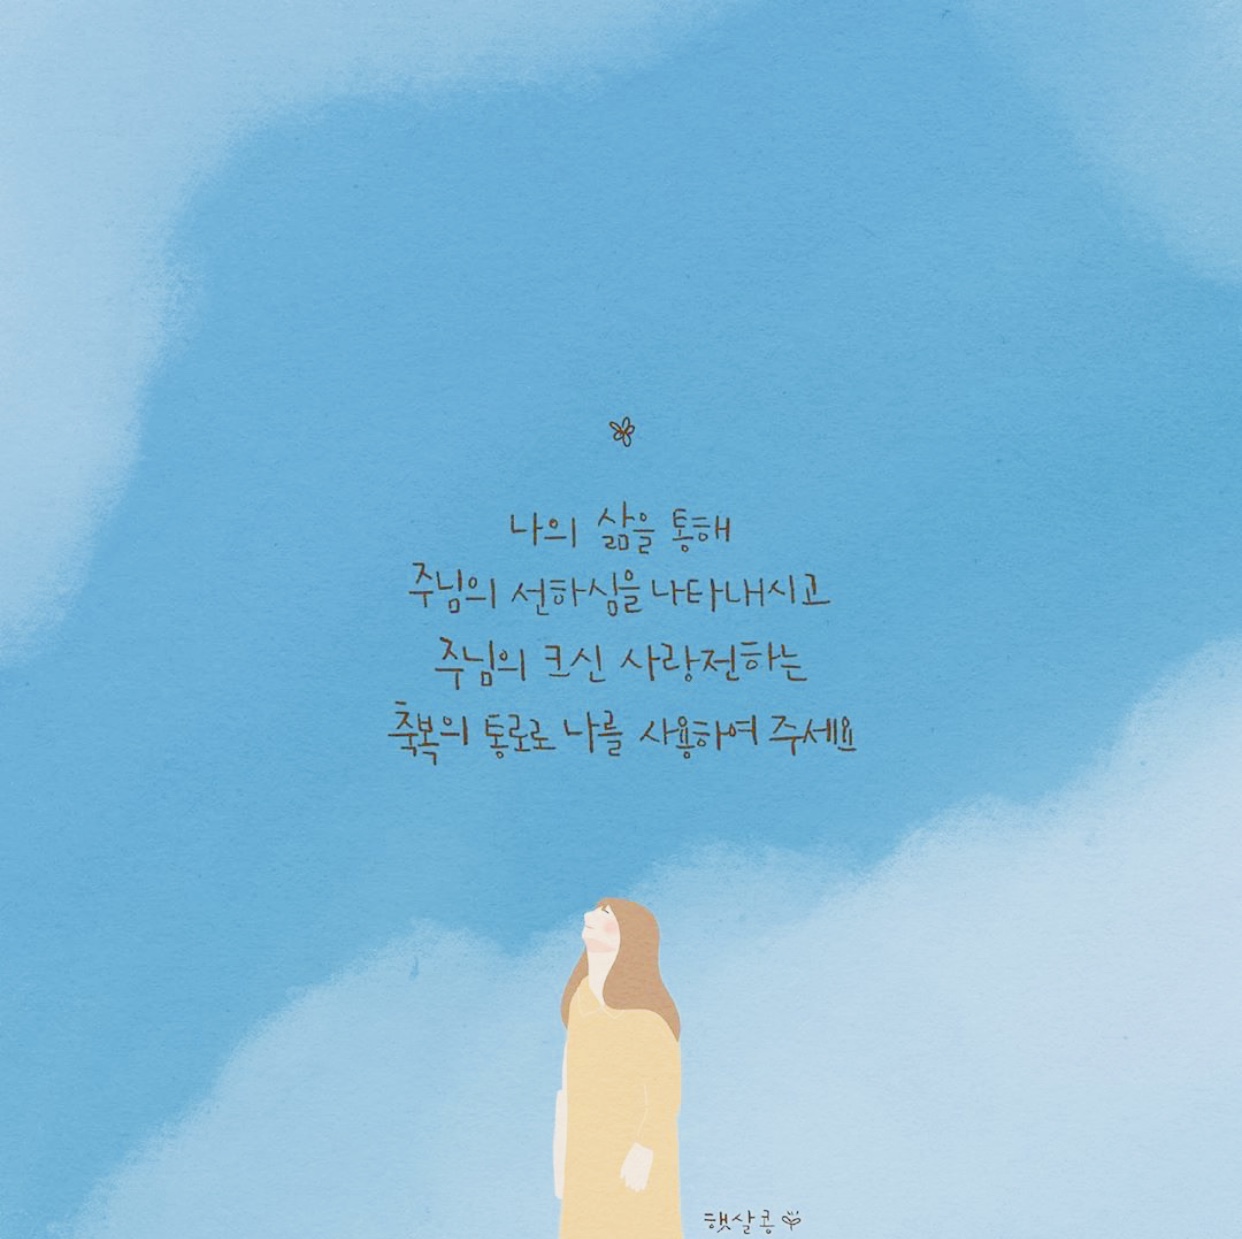 나의 삶을 통해
주님의 선하심을 나타내시고
주님의 크신 사랑전하는
축복의 통로로 나를 사용하여 주세요
햇살콩